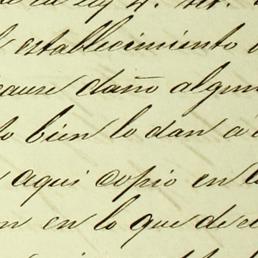 la ley 4.
establecimiento
cause daño algun
bien lo dan a
aqui copio en l
en lo que de el